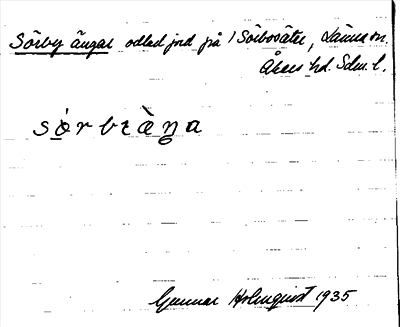 Sörby ängar odlad jord på 1 Sörbosätra, Länna sn.
Åkers hd. Sdm. l.
sǿrbɩὰŋa
Gunnar Holmquist 1935